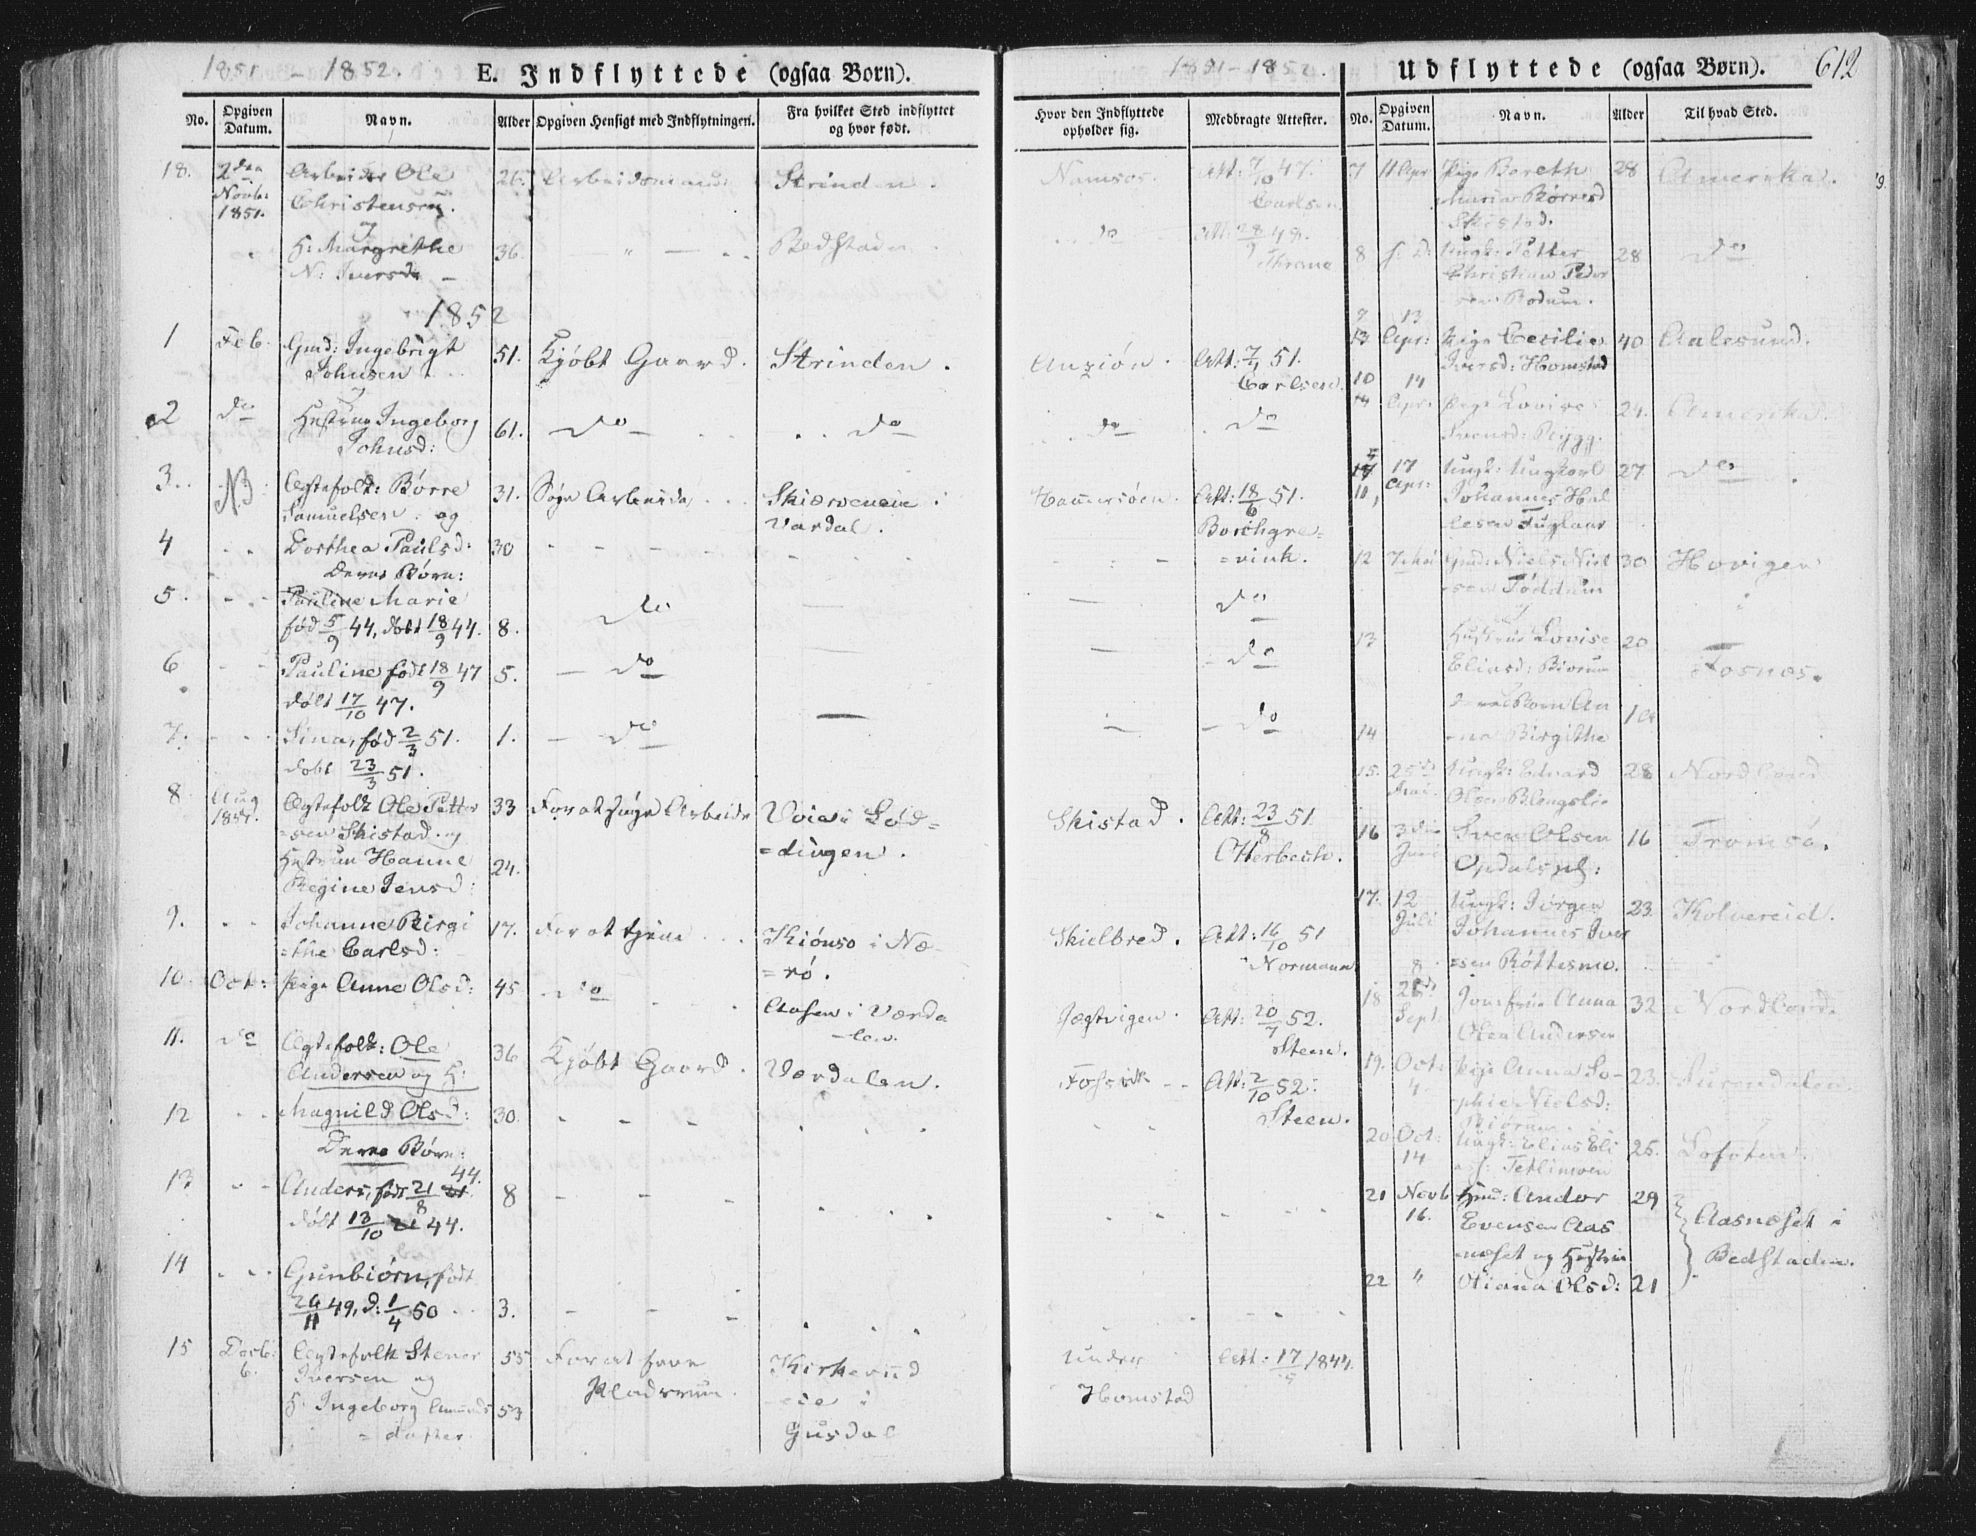 1851 - 1852. E. Indflyttede (ogsaa Børn).
No. Opgiven Datum. Navn. Alder Opgiven Hensigt med Indflytningen. Fra hvilket Sted indflyttet og hvor født.
18. 2den Novbr 1851. Arbeider Ole 26. Arbeidsmand Strinden.
Christensen.
og
H: Margrethe 36. Bedstaden
N: Iversd.
1852
1 Feb. Gmd: Ingebrigt 51. Kjøbt Gaard. Strinden.
Johnsen
og
2 do Hustrue Ingeborg 61. do do
Johnsd:
3. NB Ægtefolk: Børre 31. Søge Arbeide
Samuelsen og Vardal.
4 Dorthea Paulsd: 30
Deres Børn:
5. Pauline Marie
fød 5/9 44, døbt 18/9 44. 8. do
6 Pauline født 18/9 47 5. do
døbt 17/10 47.
7. Sina, fød 2/3 51. 1. do
døbt 23/3 51.
8 Aug 1851. Ægtefolk Ole Petter 33 For at søge Arbeide
=sen Skistad og =dingen.
Hustrue Hanne 24.
Regine Jensd:
9. Johanne Birgi 17. For at tjene i Næ-
=the Carlsd: =rö.
10. Oct: Pige Anne Olsd: 45 do Aasen i Værda
=len.
11. do Ægtefolk: Ole 36 Kjøbt Gaard. Værdalen.
Andersen og H:
12 Magnild Olsd: 30.
Deres Børn:
13 Anders, født 21/8 44. 8
døbt 13/10 44.
14 Gunbiørn, født
26/11 49, d: 1/4 50 3.
15 Decbr 6. Ægtefolk Stener 55 For at
Iversen og
H. Ingeborg 53
=datter Gusdal
1851-1852. Udflyttede (ogsaa Børn). 612
Hvor den Indflyttede opholder sig. Medbragte Attester. No. Opgiven Datum. Navn. Alder Til hvad Sted.
Namsos. Att: 7/10 47. Carlsen
do Att: 28/9 48. Thrane
Att: 7/1 51. Carlsen.
do do
Att: 18/6 51.
Borchgre=
=vink.
do
do
do
Skistad. Att: 23/8 51.
Otterbech.
Skielbred. Att: 16/10 51
Normann
Jægtvigen. Att: 20/7 52.
Steen.
Fossvik Att: 2/10 52.
Steen.
under Att: 17/5 1844.
Homstad
7 11 Apr Pige Bereth 28 Amerika.
Maria Børresd
Skistad.
8 s: D: Ungk: Petter 28 do
Christian Peder
sen Bodum.
9 13 Apr: Pige Cecilie 40 Aalesund.
Iversd: Homstad
10 14 Apr: Pige Lovise 24. Amerika.
Svensd: Rygg.
11 17 Apr: Ungk: Ungkarl 27 do
Johannes Hal
12 7 Mai Gmd: Niels Niel 30 Hovigen
sen Føddum
og
13 Hustrue Lovise 20
Eliasd: Fosnes.
14 deres Barn An 1
-na Birgithe
15. 25de Mai. Ungk: Edvard 28 Nordland
Olsen Blengslie
16 3die Juni Sven Olsen 16 Tromsö.
Opdalspl:
17. 12 Juli Ungk: Jørgen 23. Kolvereid.
Johannes Iver
=sen Røttesmo.
18 Sept. Jomfrue Anna 32. Nordland.
Olea Andersen
19. Oct: 4. Pige Anna So- 23. Surendalen.
phie Nielsd:
20 Oct: 14 Ungk: Elias Eli 25. Lofoten.
Tetlimoen
21 Novb 16. Hmd: Andor 29 Aasnæset i
Evensen Aas
næset og Hustrue Bedstaden.
22 " Oliana Olsd: 21